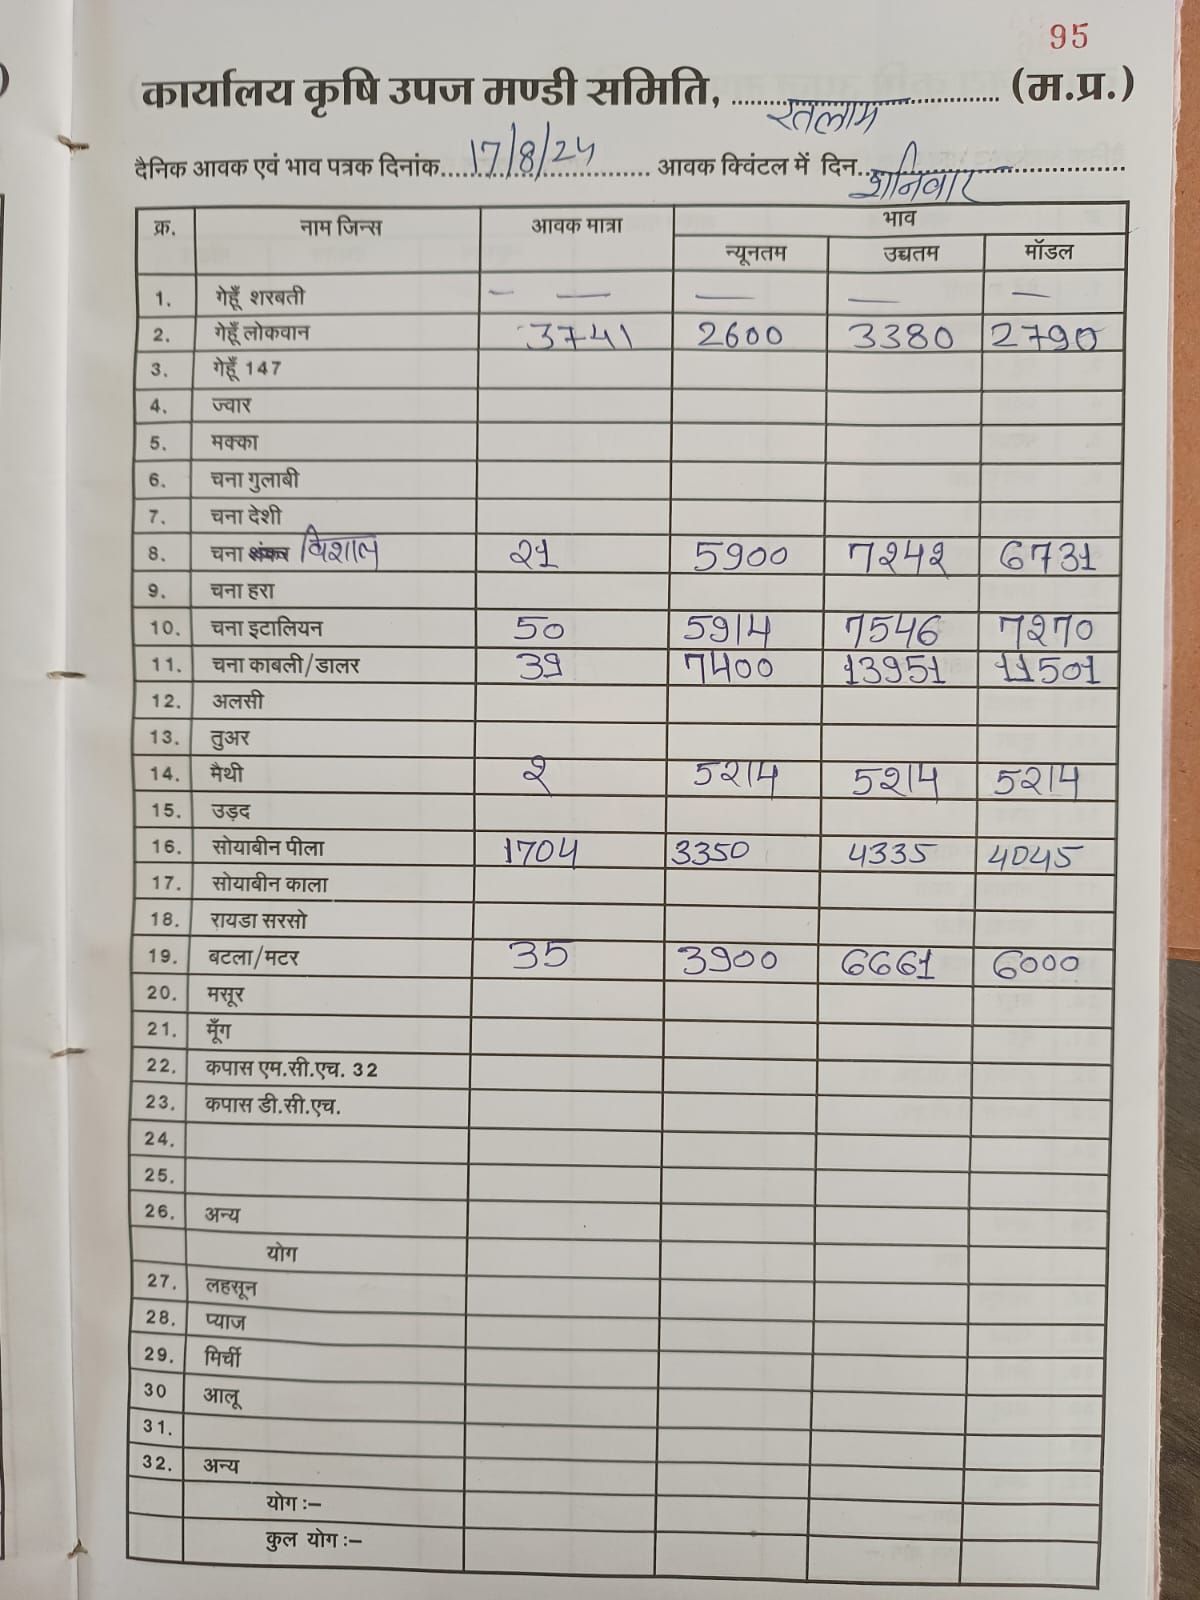 95
कार्यालय कृषि उपज मण्डी समिति, रतलाम (म.प्र.)
दैनिक आवक एवं भाव पत्रक दिनांक 17/8/24 आवक क्विंटल में दिन शनिवार
क्र. नाम जिन्स आवक मात्रा भाव
न्यूनतम उच्चतम मॉडल
1. गेहूँ शरबती — — — — —
2. गेहूँ लोकवान 3741 2600 3380 2790
3. गेहूँ 147
4. ज्वार
5. मक्का
6. चना गुलाबी
7. चना देशी
8. चना विशाल 21 5900 7242 6731
9. चना हरा
10. चना इटालियन 50 5914 7546 7270
11. चना काबली/डालर 39 7400 13951 11501
12. अलसी
13. तुअर
14. मैथी 2 5214 5214 5214
15. उड़द
16. सोयाबीन पीला 1704 3350 4335 4045
17. सोयाबीन काला
18. रायडा सरसो
19. बटला/मटर 35 3900 6661 6000
20. मसूर
21. मूँग
22. कपास एम.सी.एच. 32
23. कपास डी.सी.एच.
24.
25.
26. अन्य
योग
27. लहसून
28. प्याज
29. मिर्ची
30 आलू
31.
32. अन्य
योग :–
कुल योग :–